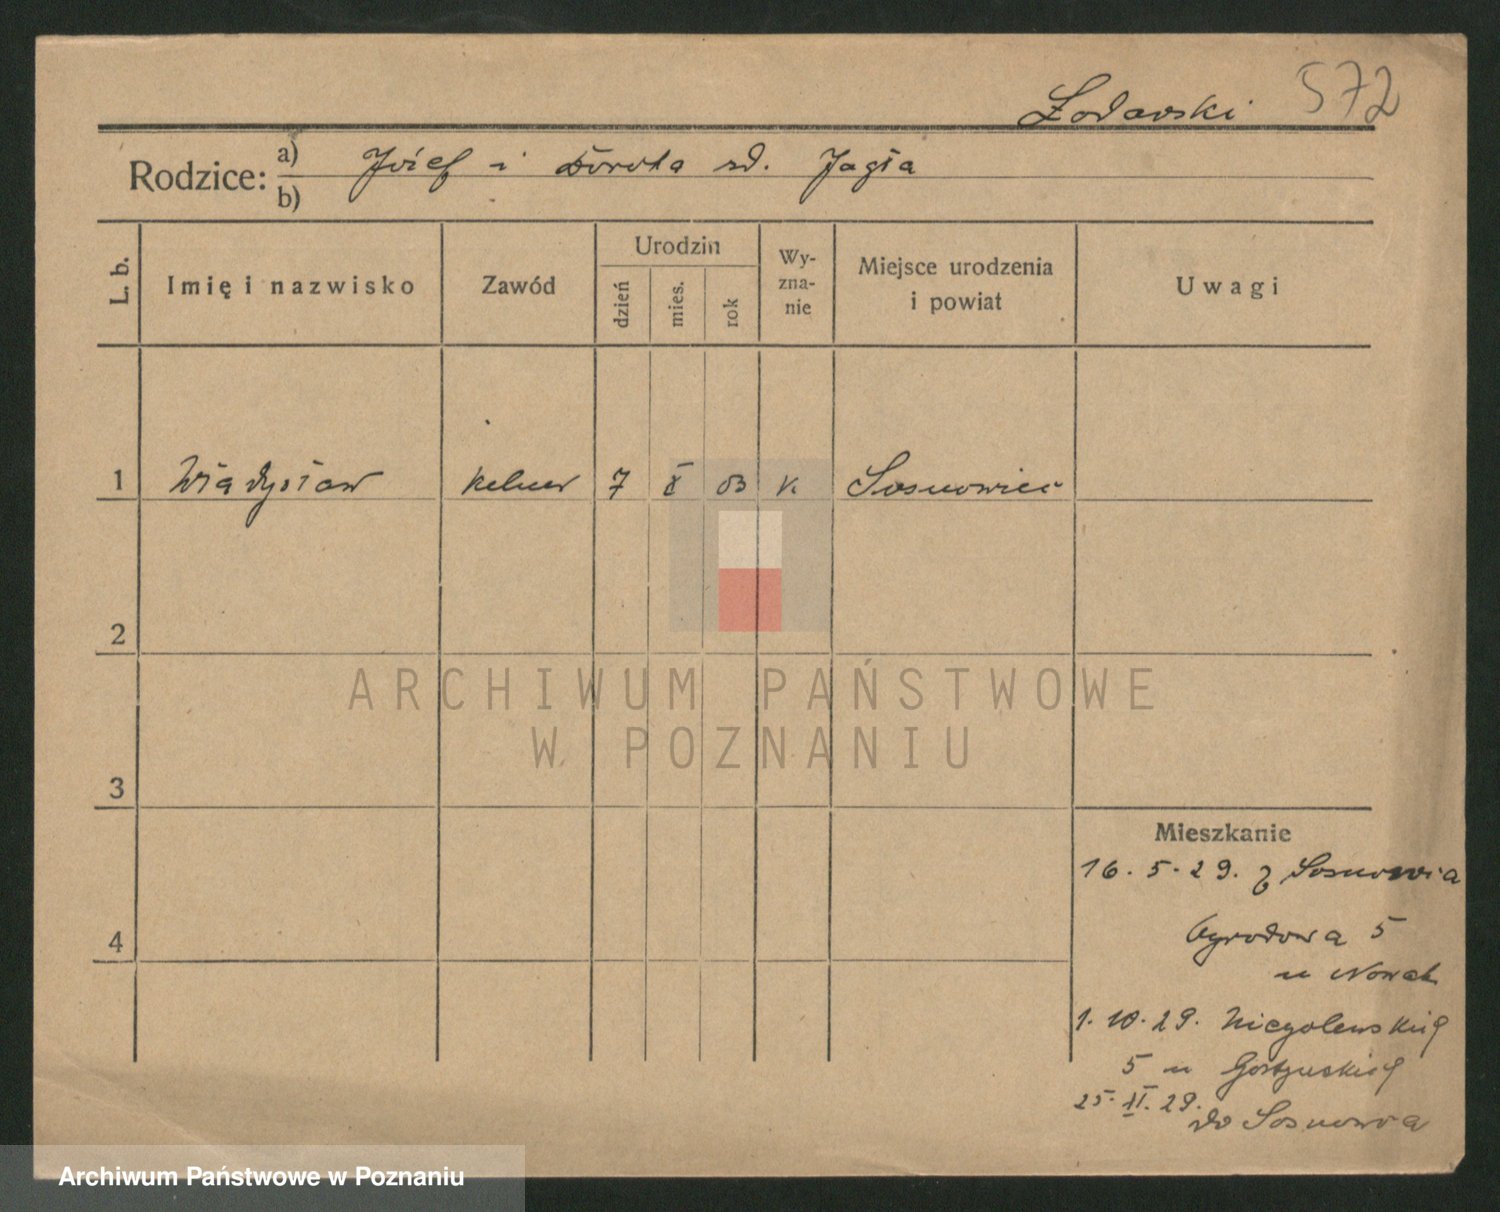 Żodawski 572
Rodzice: a) Józef i Dorota zd. Jagła
b)
L. b. Imię i nazwisko Zawód Urodzin dzień mies. rok Wyznanie Miejsce urodzenia i powiat Uwagi
1 Władysław kelner 7 X 03 k. Sosnowiec
2
ARCHIWUM PAŃSTWOWE
W POZNANIU
3
Mieszkanie
16. 5. 29. z Sosnowca
4 Ogrodowa 5
u Nowak
1. 10. 29. Niegolewskich
5 u
25. 29. do Sosnowca
Archiwum Państwowe w Poznaniu